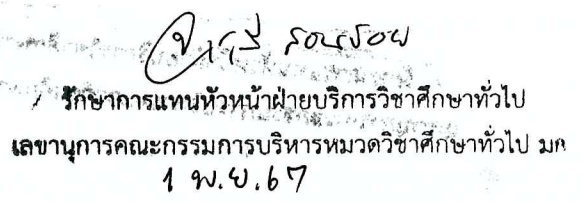 รักษาการแทนหัวหน้าฝ่ายบริการวิชาศึกษาทั่วไป
เลขานุการคณะกรรมการบริหารหมวดวิชาศึกษาทั่วไป มก
1 พ.ย.67